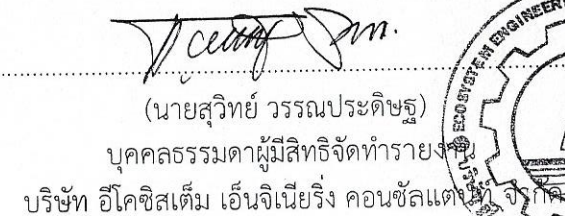 (นายสุวิทย์ วรรณประดิษฐ)
บุคคลธรรมดาผู้มีสิทธิจัดทำรายงาน
บริษัท อีโคซิสเต็ม เอ็นจิเนียริ่ง คอนซัลแตนท์ จำกัด
ECOSYSTEM ENGINEER